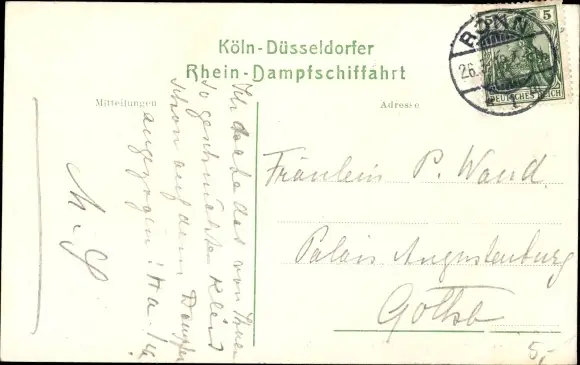 Köln-Düsseldorfer
Rhein-Dampfschiffahrt
Mitteilungen
Adresse
BONN
26.
5
DEUTSCHES REICH
Ich habe das von Ihnen
so geschmückte Kleid
schon auf dem Dampfer
angezogen! Ha
M. S.
Fräulein P. Wand.
Palais Augustenburg
Gotha
5,-